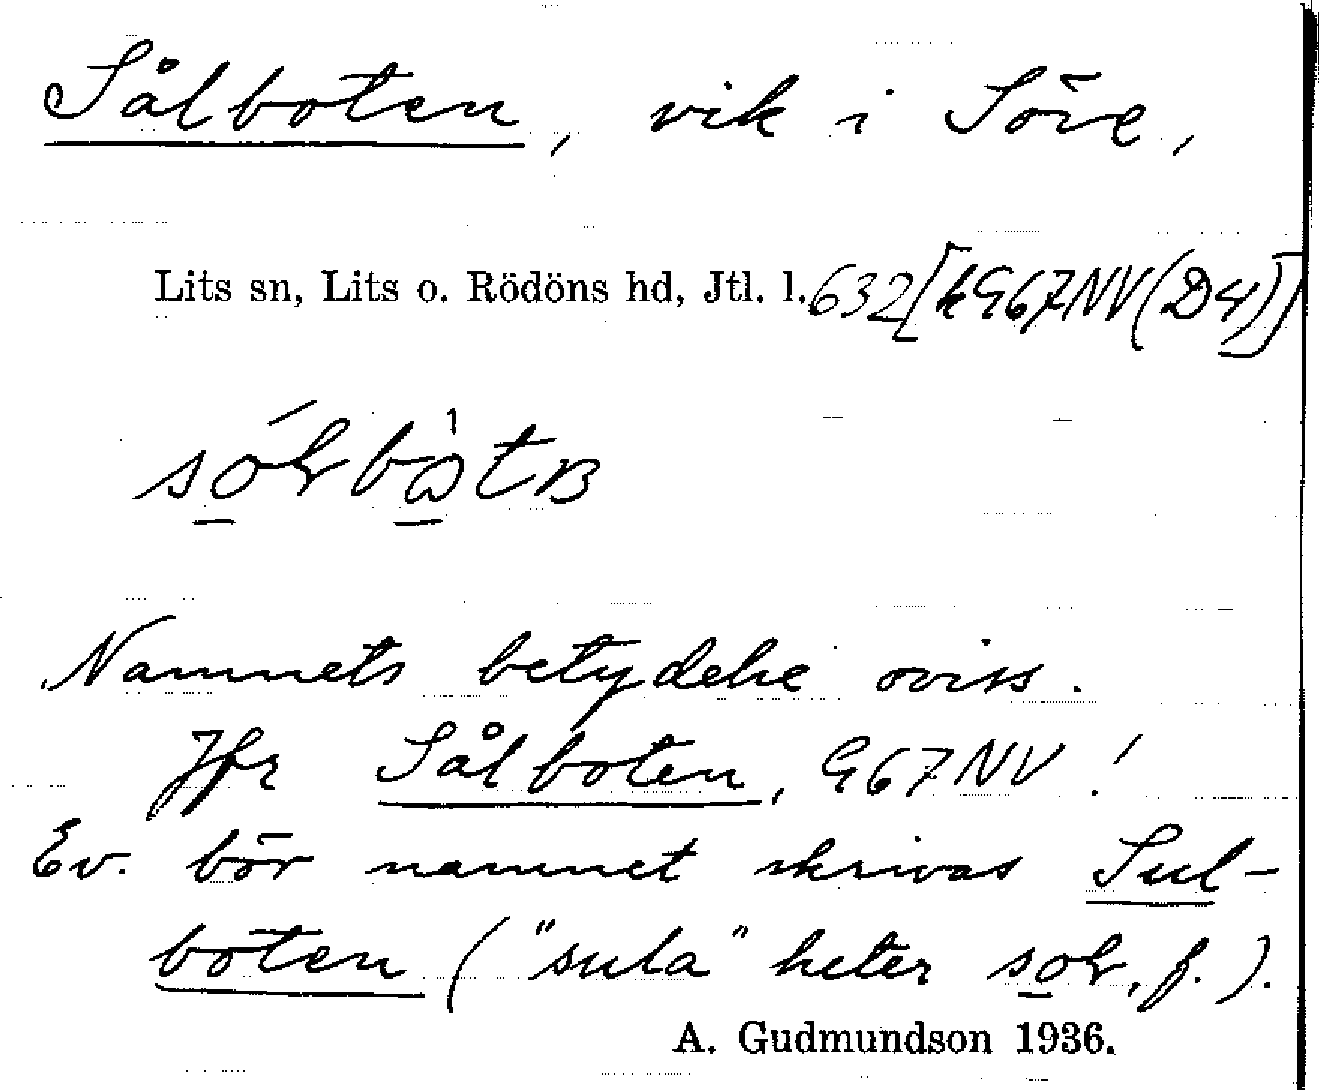 Sålboten, vik i Söre,
Lits sn, Lits o. Rödöns hd, Jtl. l. 632 [k G67NV (D4)]
Namnets betydelse oviss.
Jfr Sålboten, G67NV!
Ev. bör namnet skrivas Sul-
boten ("sula" heter f.).
A. Gudmundson 1936.